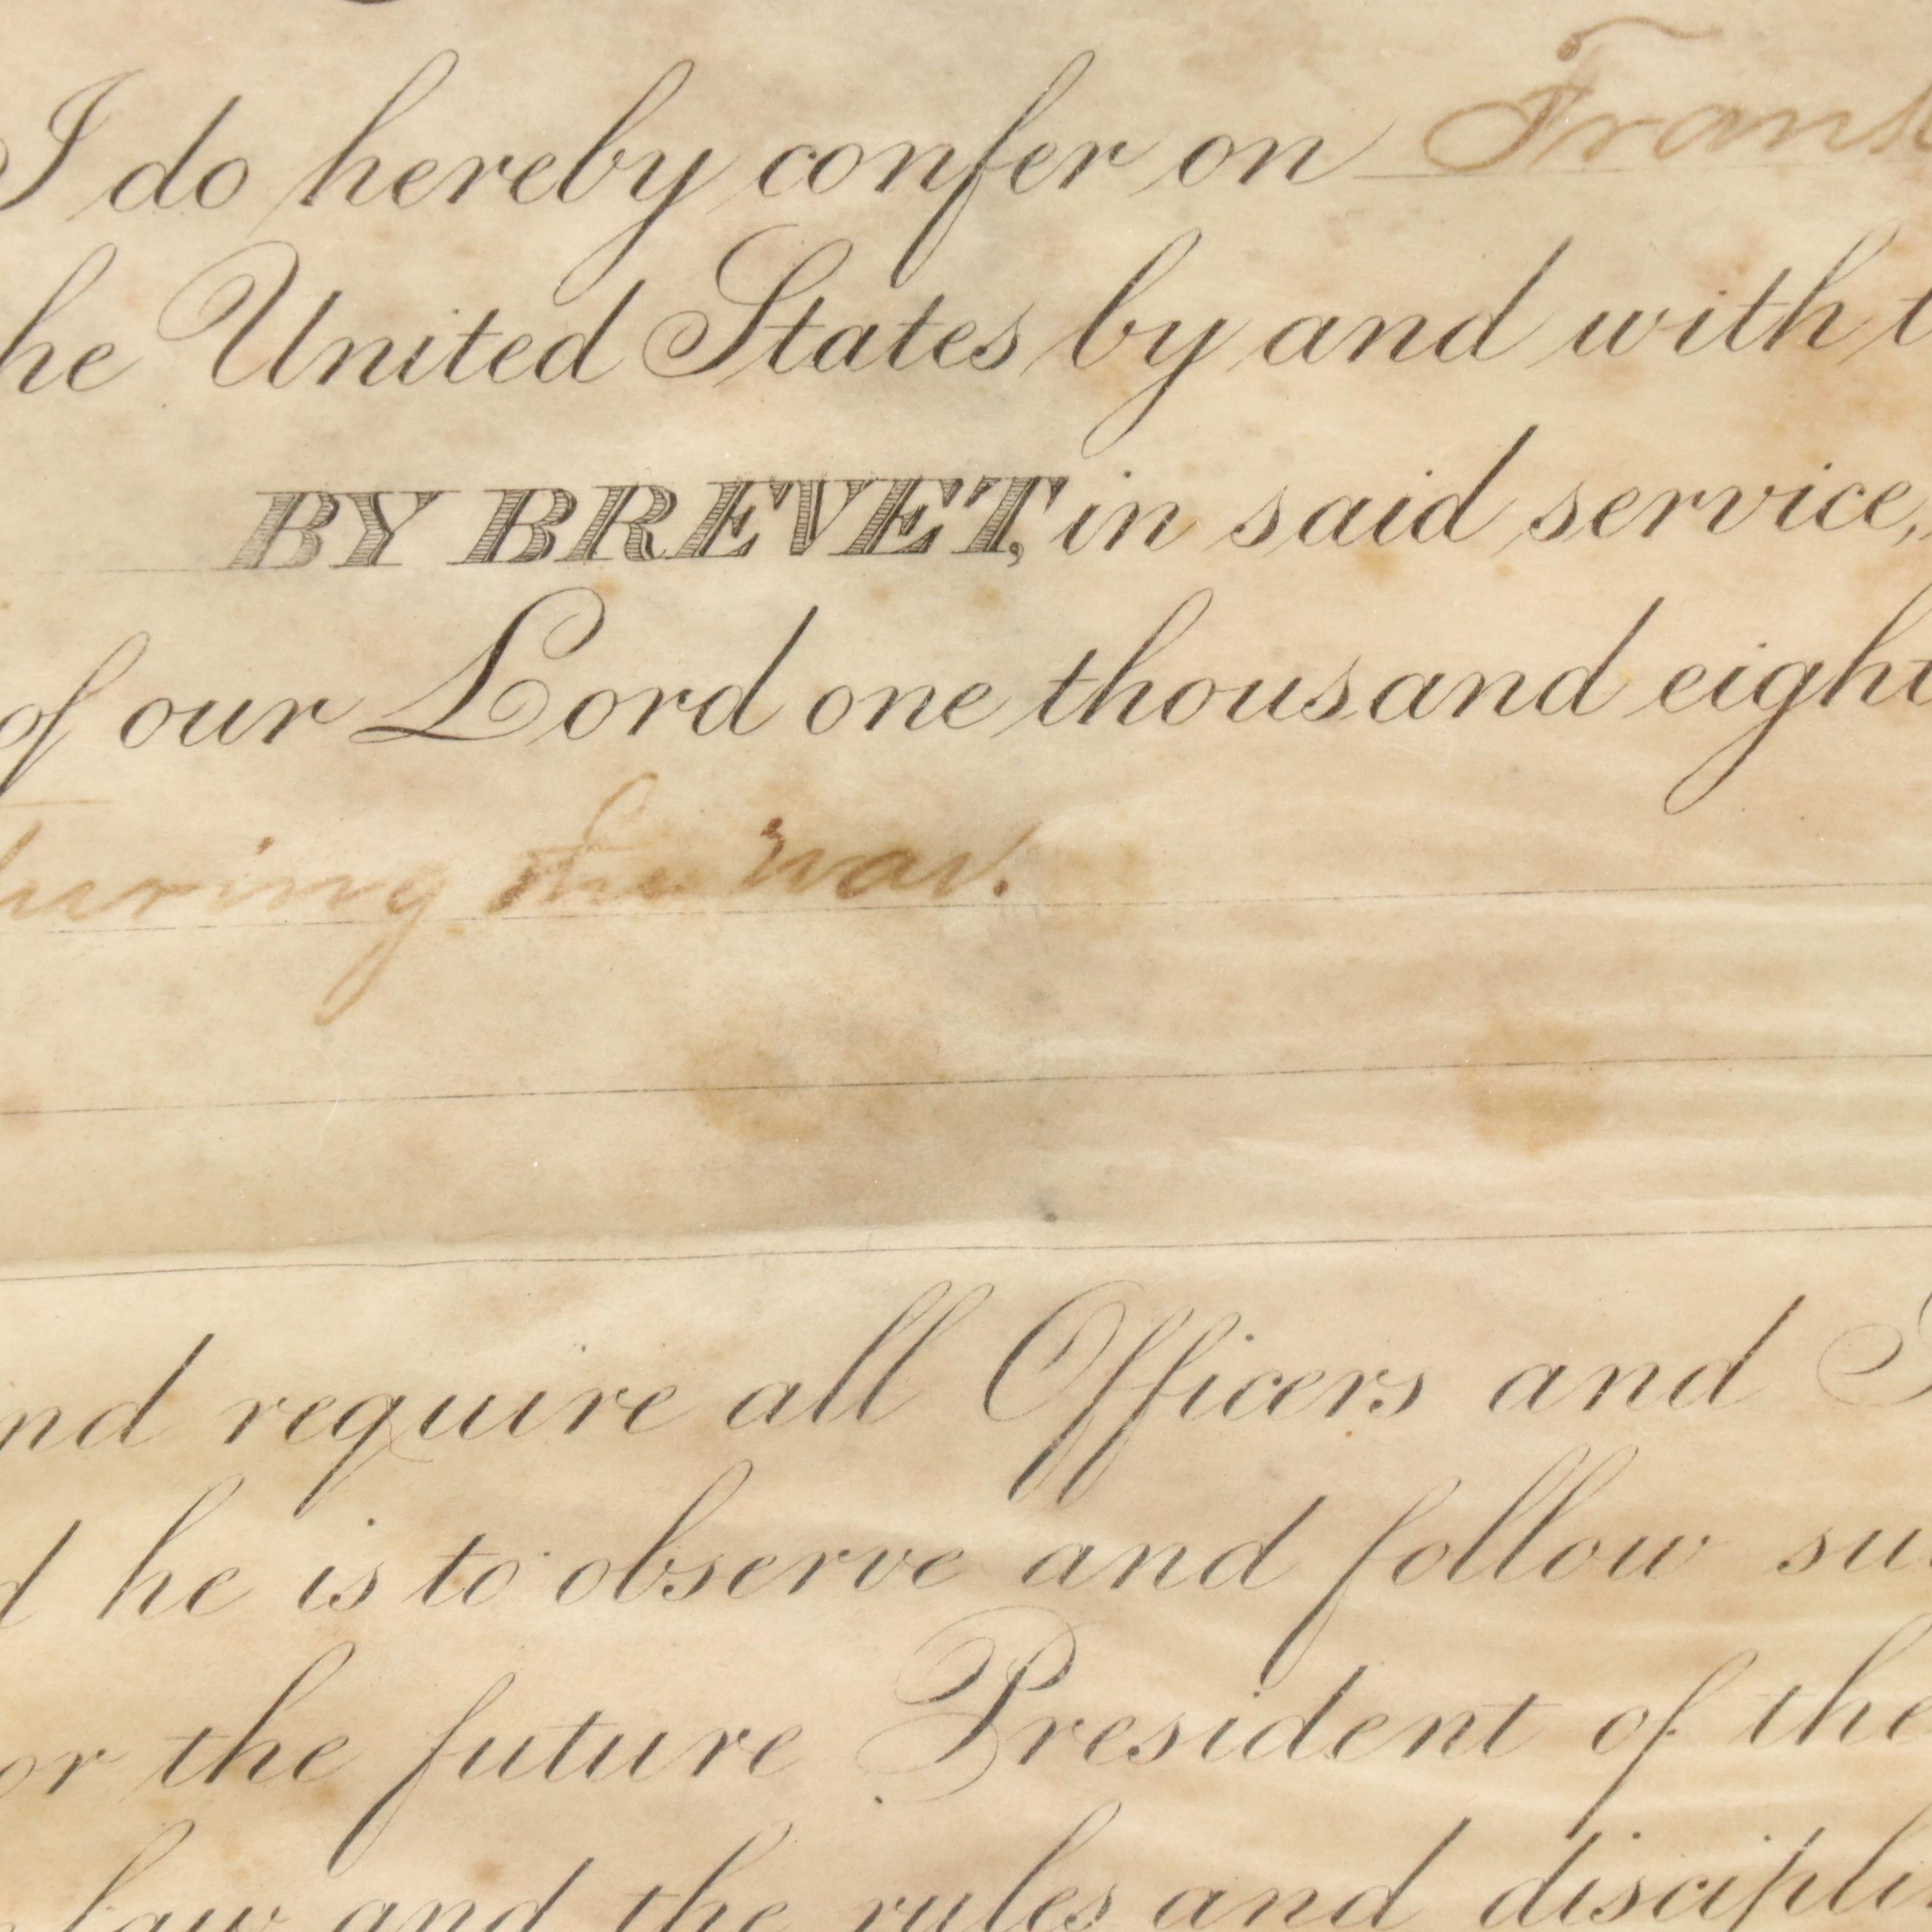 I do hereby confer on Frank
he United States by and with t
BY BREVET, in said service,
of our Lord one thousand eight
during the war.
nd require all Officers and S
d he is to observe and follow su
or the future President of the
law and the rules and discipli